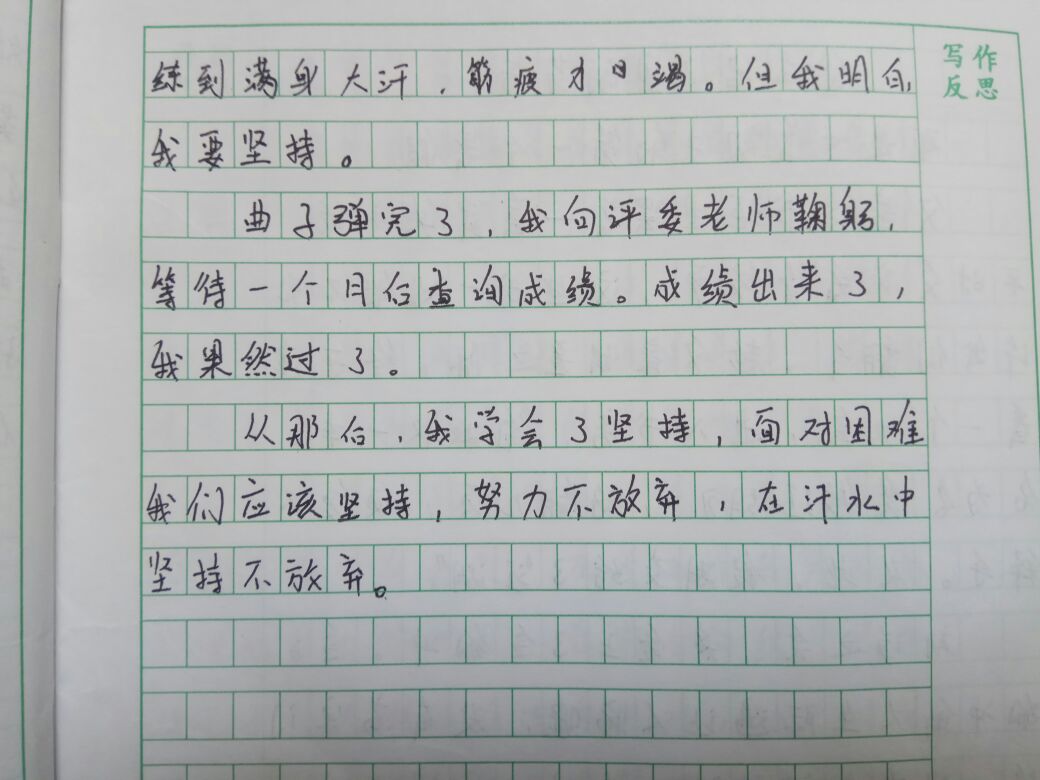 练到满身大汗，筋疲才日渴。但我明白，
写作
反思
我要坚持。
曲子弹完了，我向评委老师鞠躬，
等待一个月后查询成绩。成绩出来了，
我果然过了。
从那后，我学会了坚持，面对困难
我们应该坚持，努力不放弃，在汗水中
坚持不放弃。